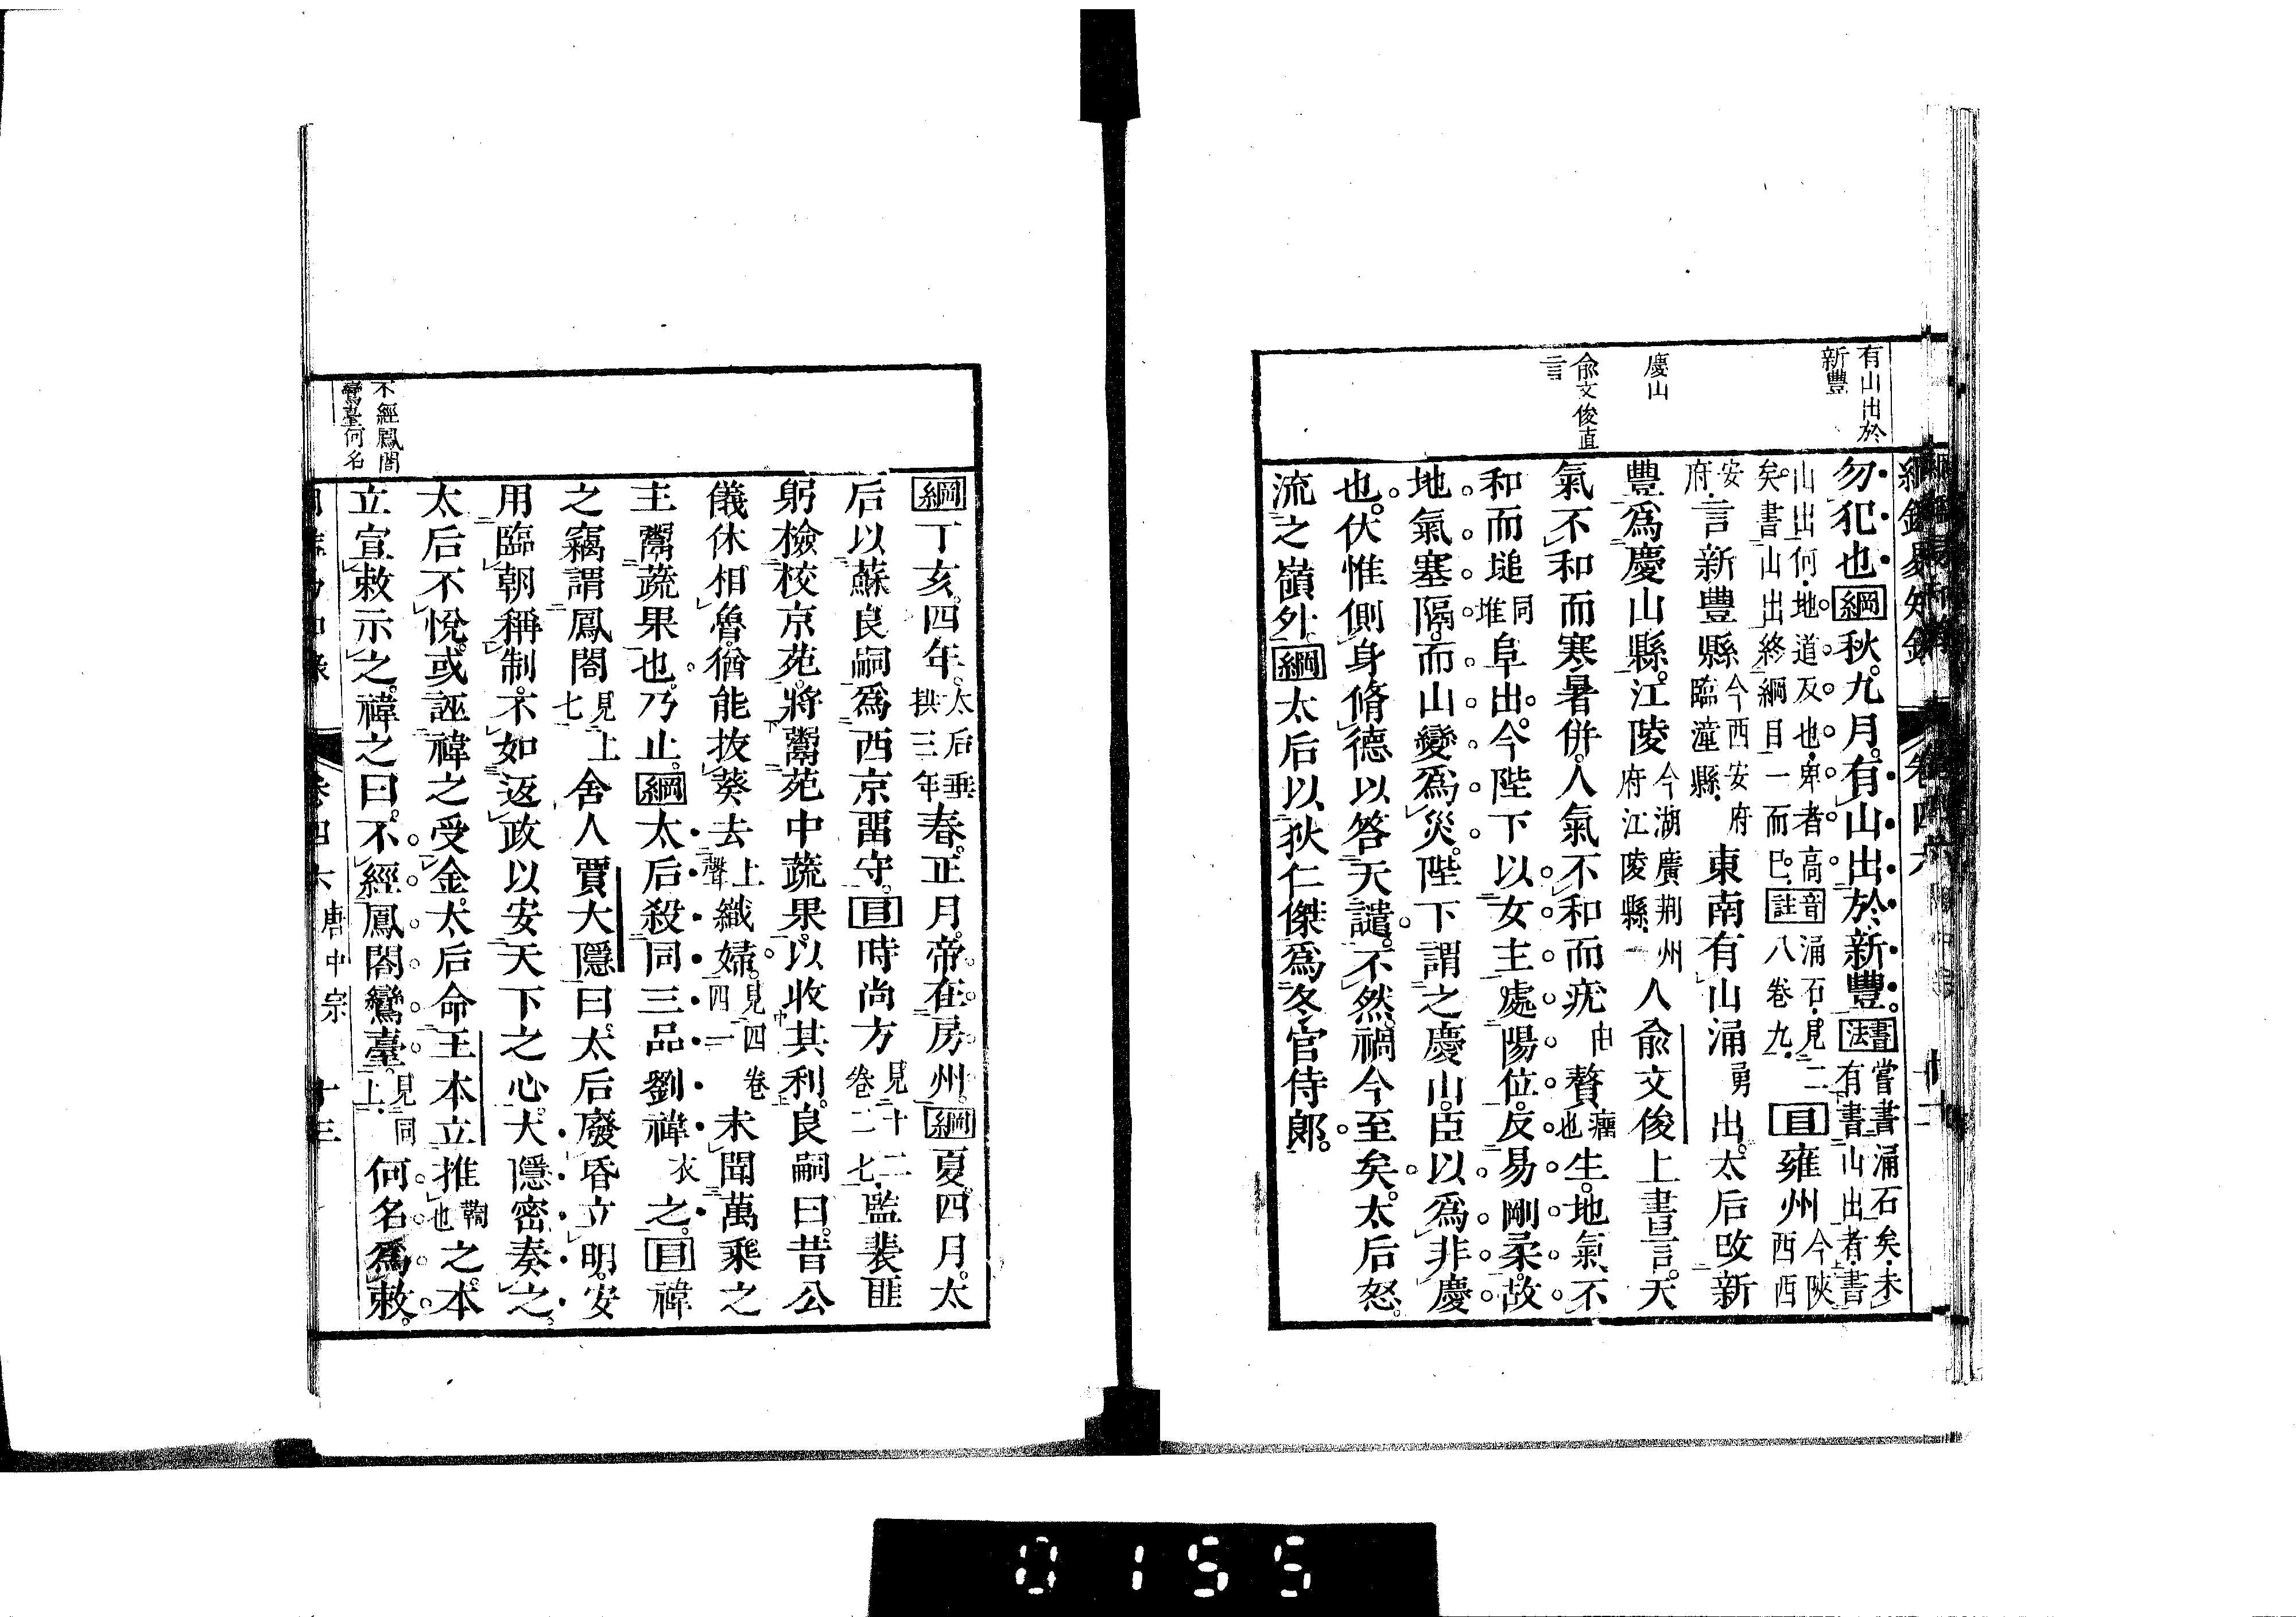 有山出於
新豐
慶山
兪文俊直
言
勿犯也綱秋九月有山出於新豐書法當書涌石矣未有書山出者書
山出何地道反也卑者高矣書山出終綱目一而已註音涌石見二八卷九目雍州今陝西西
安府言新豐縣今西安府臨潼縣東南有山涌勇出太后改新
豐爲慶山縣江陵今湖廣荆州府江陵縣人兪文俊上書言天
氣不和而寒暑併人氣不和而疣由贅瘤也生地氣不
和而塠同堆阜出今陛下以女主處陽位反易剛柔故
地氣塞隔而山變爲災陛下謂之慶山臣以爲非慶
也伏惟側身脩德以答天譴不然禍今至矣太后怒
流之嶺外綱太后以狄仁傑爲冬官侍郎
綱丁亥四年太后垂拱三年春正月帝在房州綱夏四月太
后以蘇良嗣爲西京留守目時尚方見十二卷二七監裴匪
躬檢校京苑將鬻苑中蔬果以收其利良嗣曰昔公
儀休相魯猶能拔葵去上聲織婦見四卷四一未聞萬乘之
主鬻蔬果也乃止綱太后殺同三品劉禕衣之目禕
之竊謂鳳閣見上七舍人賈大隱曰太后廢昏立明安
用臨朝稱制不如返政以安天下之心大隱密奏之
太后不悅或誣禕之受金太后命王本立推鞫也之本
立宣敕示之禕之曰不經鳳閣鸞臺見同上何名爲敕
不經鳳閣
鸞臺何名
卷四六 唐中宗 十三